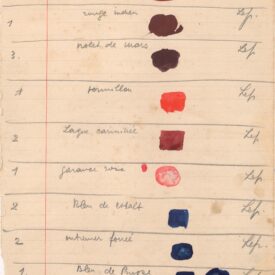 1 rouge indien Lef.
3. violet de mars Lef
1 vermillon Lef
2 Laque carminée Lef
1 garance rose Lef
2 Bleu de cobalt Lef
2 outremer foncé Lef.
1 Bleu de Prusse Lef